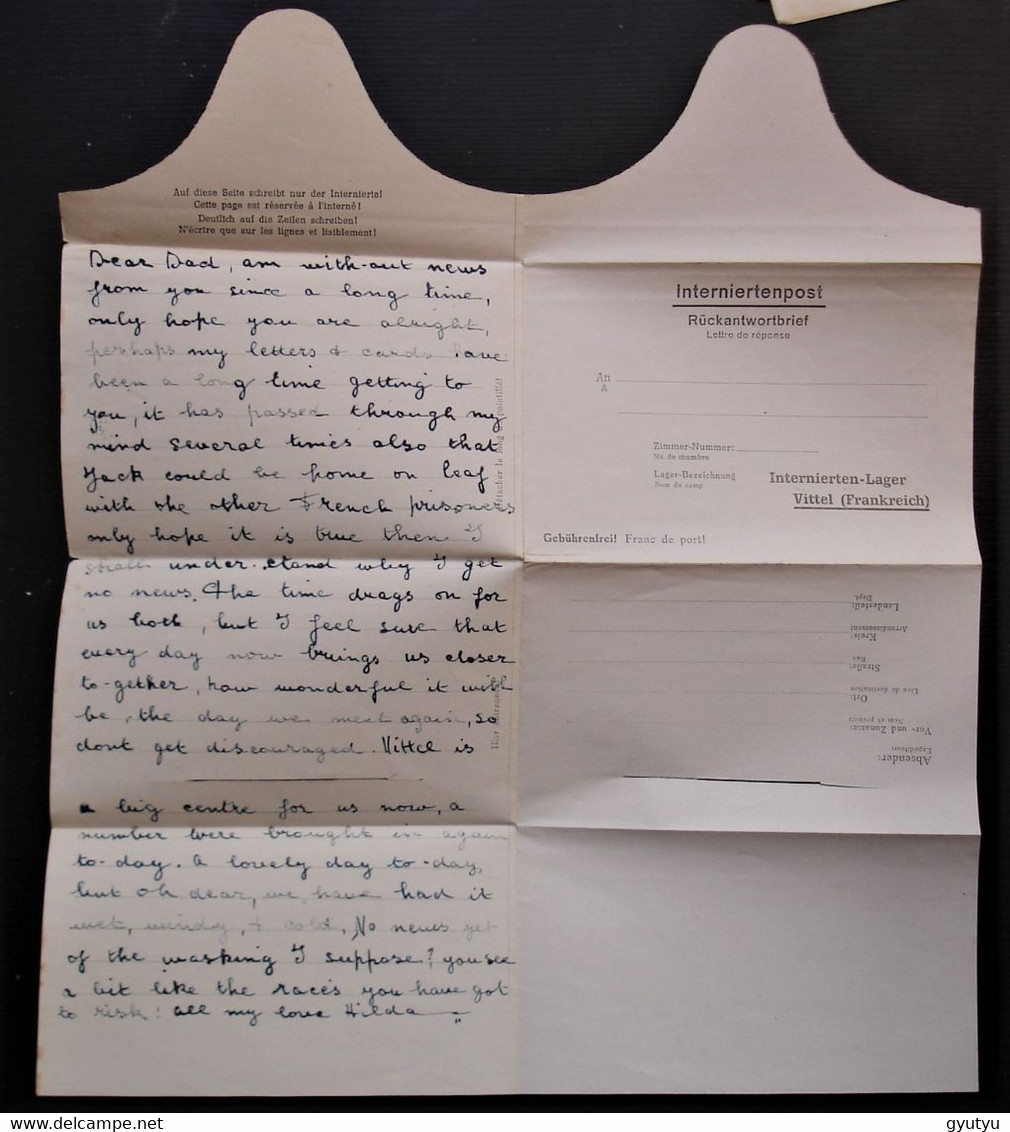 Auf diese Seite schreibt nur der Internierte!
Cette page est réservée à l'interné!
Deutlich auf die Zeilen schreiben!
N'écrire que sur les lignes et lisiblement!
Dear Dad, am with-out news
from you since a long time,
only hope you are alright,
perhaps my letters & cards have
been a long time getting to
you, it has passed through my
mind several times also that
Jack could be home on leaf
with she other French prisoners
only hope it is true then I
shall under-stand why I get
no news. The time drags on for
us both, but I feel sure that
every day now brings us closer
to-gether, how wonderful it will
be, the day we meet again, so
dont get discouraged. Vittel is
a big centre for us now, a
number were brought in again
to-day. A lovely day to-day,
but Oh dear, we have had it
wet, windy, & cold. No news yet
of the washing I suppose? you see
a bit like the races you have got
to risk: all my love Hilda
détacher le long pointillé!
Hier
Interniertenpost
Rückantwortbrief
Lettre de réponse
An
A
Zimmer-Nummer:
No. de chambre
Lager-Bezeichnung
Nom de camp
Internierten-Lager
Vittel (Frankreich)
Gebührenfrei! Franc de port!
Absender:
Expéditeur:
Vor- und Zuname:
Nom et prénom
Ort:
Lieu de destination
Straße:
Rue
Kreis:
Arrondissement
Landesteil:
Dépt.
gyutyu